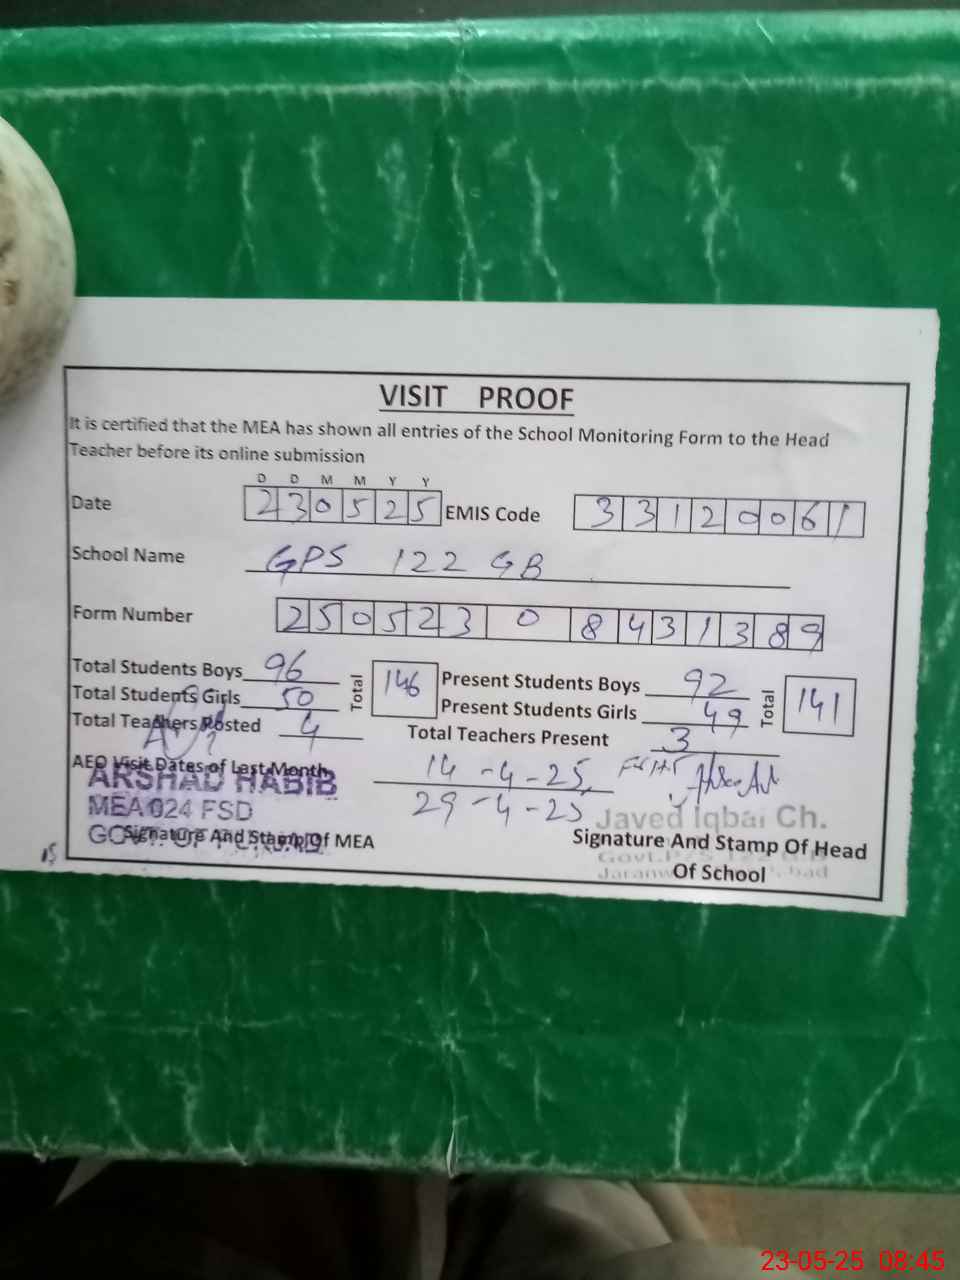 VISIT PROOF
It is certified that the MEA has shown all entries of the School Monitoring Form to the Head
Teacher before its online submission
D D M M Y Y
Date 230525 EMIS Code 33120061
School Name GPS 122 GB
Form Number 250523 0 8431389
Total Students Boys 96 Total 146 Present Students Boys 92 Total 141
Total Students Girls 50 Present Students Girls 49
Total Teachers Posted 4 Total Teachers Present 3
AEO Visit Dates of Last Month 14-4-25,
29-4-25
ARSHAD HABIB
MEA 024 FSD
Signature And Stamp Of MEA
Javed Iqbal Ch.
Signature And Stamp Of Head
Of School
23-05-25 08:45